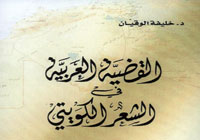 د. خليفة الوقيان
القضية العربية
في
الشعر الكويتي